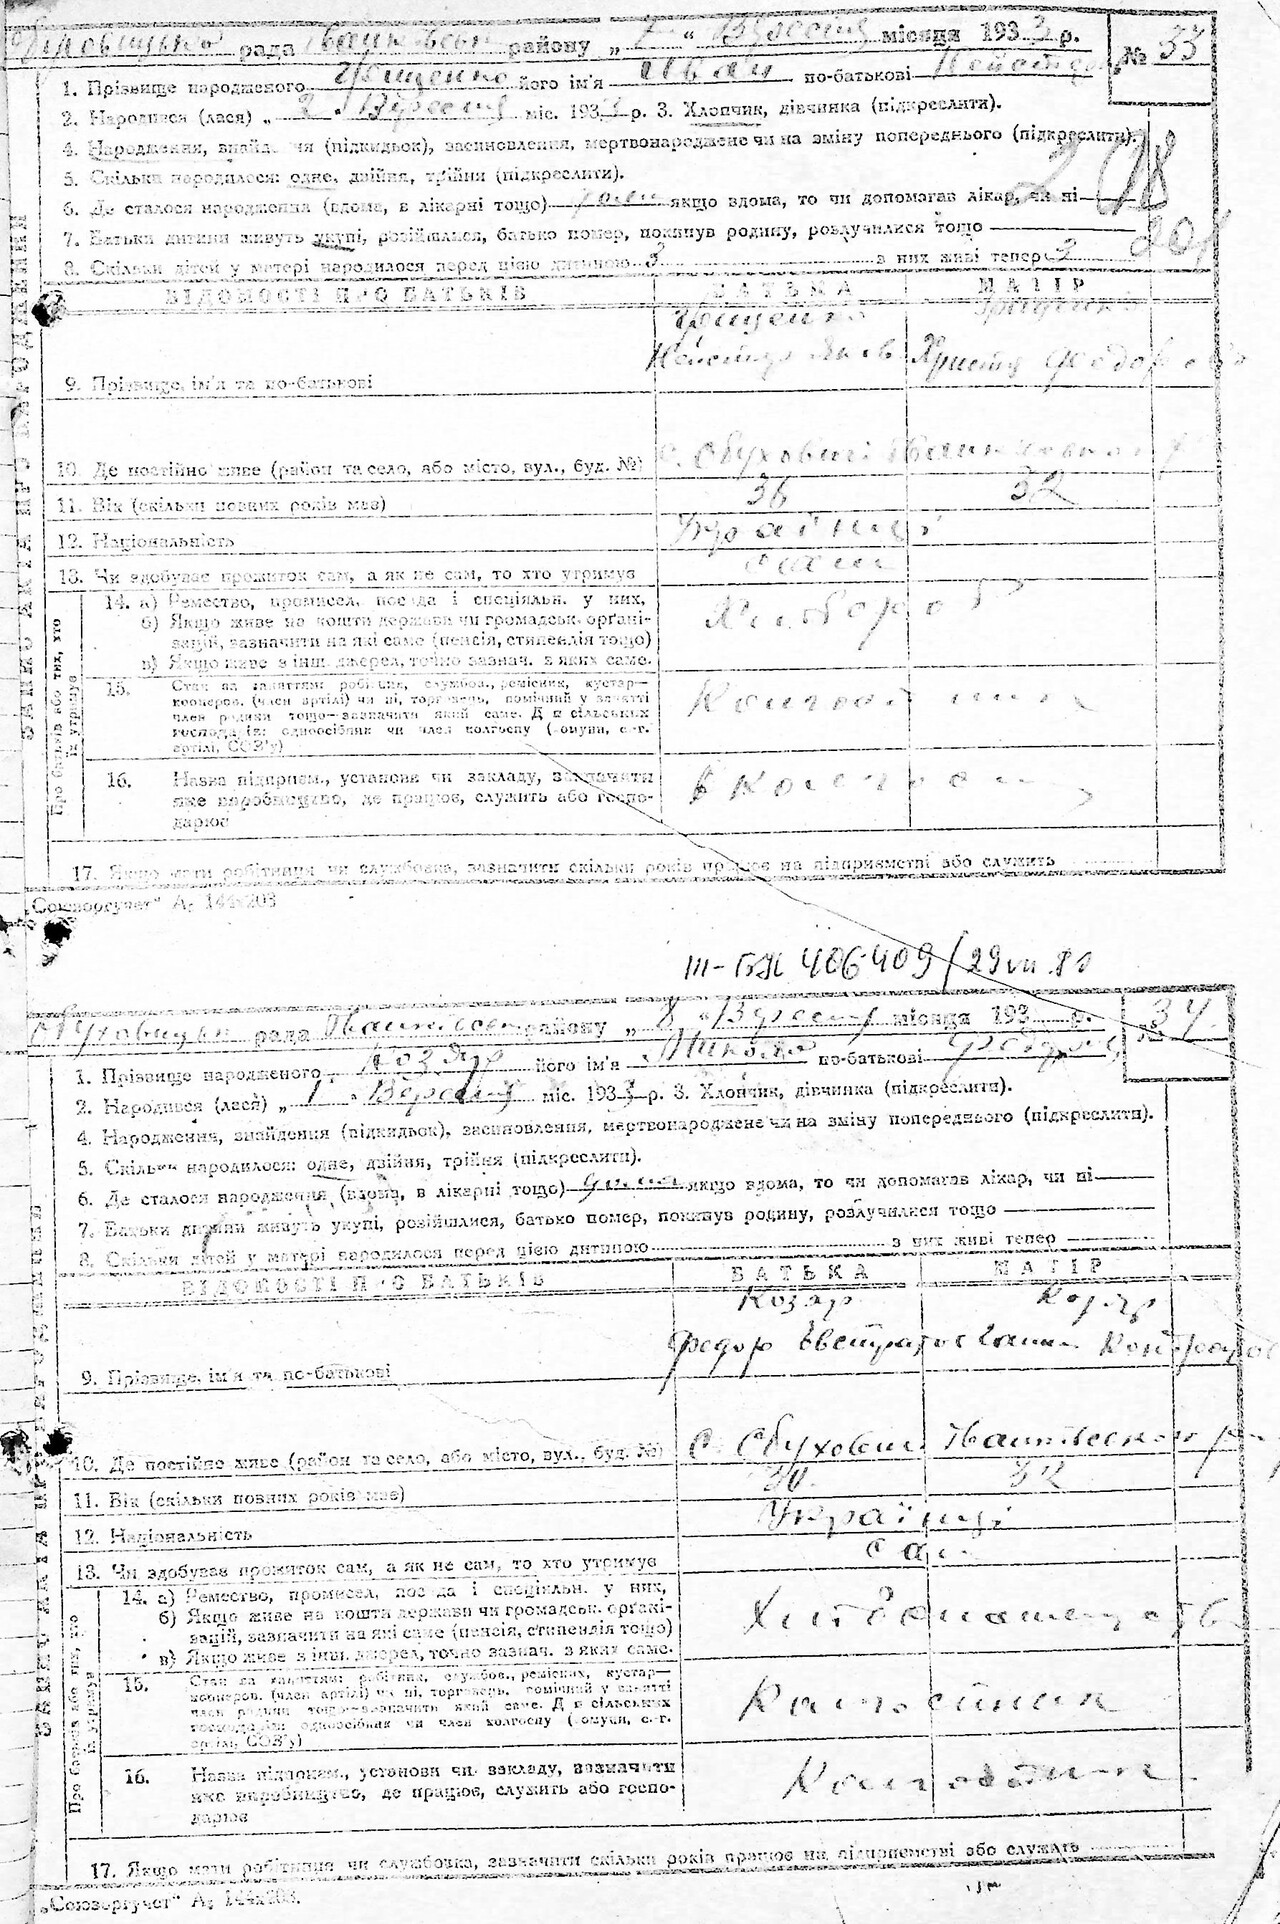 Обуховицька рада Іванківськ району „ 7 “ Вересня місяця 1933 р. № 33
1. Прізвище народженого Грищенко його ім'я Иван по-батькові
2. Народився (лася) „ 2 “ Вересня міс. 1933 р. 3. Хлопчик, дівчинка (підкреслити).
4. Народження, знайдення (підкидьок), засиновлення, мертвонароджене чи на зміну попереднього (підкреслити).
5. Скільки народилося: одне, двійня, трійня (підкреслити).
6. Де сталося народження (вдома, в лікарні тощо) якщо вдома, то чи допомагав лікар, чи ні
7. Батьки дитини живуть укупі, розійшлися, батько помер, покинув родину, розлучилися тощо
8. Скільки дітей у матері народилося перед цією дитиною 3 з них живі тепер 3
ВІДОМОСТІ ПРО БАТЬКІВ БАТЬКА МАТІР
Грищенко Грищенко
9. Прізвище, ім'я та по-батькові Христя Федоровна
10. Де постійно живе (район та село, або місто, вул., буд. №) с. Обуховичі Іванківського
11. Вік (скільки повних років має) 36 32
12. Національність Українці
13. Чи здобуває прожиток сам, а як не сам, то хто утримує сами
Про батьків або тих, хто їх утримує
14. а) Ремество, промисел, посада і спеціяльн. у них,
б) Якщо живе на кошти держави чи громадськ. органі-
зацій, зазначити на які саме (пенсія, стипендія тощо)
в) Якщо живе з інш. джерел, точно зазнач. з яких саме.
Хлібороб
15. Стан за заняттям: робітник, службов., ремісник, кустар—
кооперов. (член артілі) чи ні, торговець, помічний у занятті
член родини тощо—зазначити який саме. Для сільських
господарів: одноосібник чи член колгоспу (комуни, с.-г.
артілі, СОЗ'у)
16. Назва підприєм., установи чи закладу, зазначити
яке виробництво, де працює, служить або госпо-
дарює
17. Якщо мати робітниця чи службовка, зазначити скільки років працює на підприємстві або служить
„Союзоргучет“ А5 144х203
ЗАПИС АКТА ПРО НАРОДЖЕННЯ
III-БК 406409/29 VII 81
Обуховицьк рада Іванківськ району „ 8 “ Вересня місяця 193 р. № 34
1. Прізвище народженого Козяр його ім'я Микола по-батькові
2. Народився (лася) „ 1 “ Вересня міс. 1933 р. 3. Хлопчик, дівчинка (підкреслити).
4. Народження, знайдення (підкидьок), засиновлення, мертвонароджене чи на зміну попереднього (підкреслити).
5. Скільки народилося: одне, двійня, трійня (підкреслити).
6. Де сталося народження (вдома, в лікарні тощо) якщо вдома, то чи допомагав лікар, чи ні
7. Батьки дитини живуть укупі, розійшлися, батько помер, покинув родину, розлучилися тощо
8. Скільки дітей у матері народилося перед цією дитиною з них живі тепер
ВІДОМОСТІ ПРО БАТЬКІВ БАТЬКА МАТІР
Козяр Козяр
9. Прізвище, ім'я та по-батькові Федор
10. Де постійно живе (район та село, або місто, вул., буд. №) с. Обухович Іванківського
11. Вік (скільки повних років має) 30 32
12. Національність Українці
13. Чи здобуває прожиток сам, а як не сам, то хто утримує сам
Про батьків або тих, хто їх утримує
14. а) Ремество, промисел, посада і спеціяльн. у них,
б) Якщо живе на кошти держави чи громадськ. органі-
зацій, зазначити на які саме (пенсія, стипендія тощо)
в) Якщо живе з інш. джерел, точно зазнач. з яких саме.
15. Стан за заняттям: робітник, службов., ремісник, кустар—
кооперов. (член артілі) чи ні, торговець, помічний у занятті
член родини тощо—зазначити який саме. Для сільських
господарів: одноосібник чи член колгоспу (комуни, с.-г.
артілі, СОЗ'у)
16. Назва підприєм., установи чи закладу, зазначити
яке виробництво, де працює, служить або госпо-
дарює
17. Якщо мати робітниця чи службовка, зазначити скільки років працює на підприємстві або служить
„Союзоргучет“ А5 144х203.
ЗАПИС АКТА ПРО НАРОДЖЕННЯ